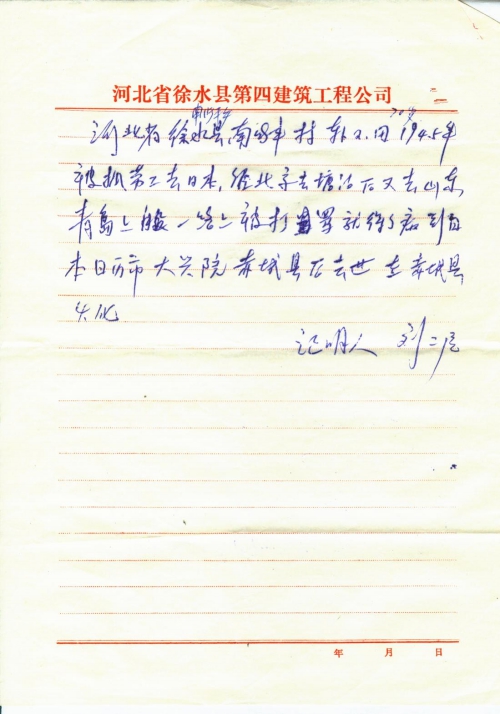 河北省徐水县第四建筑工程公司
河北省徐水县南 村 1945年
被抓劳工去日本,经北京去塘沽后又去山东
青岛上船一路上被打 骂就得了病到日
本日 市大 院赤城县后去世在赤城县
火化
证明人 刘二
年 月 日